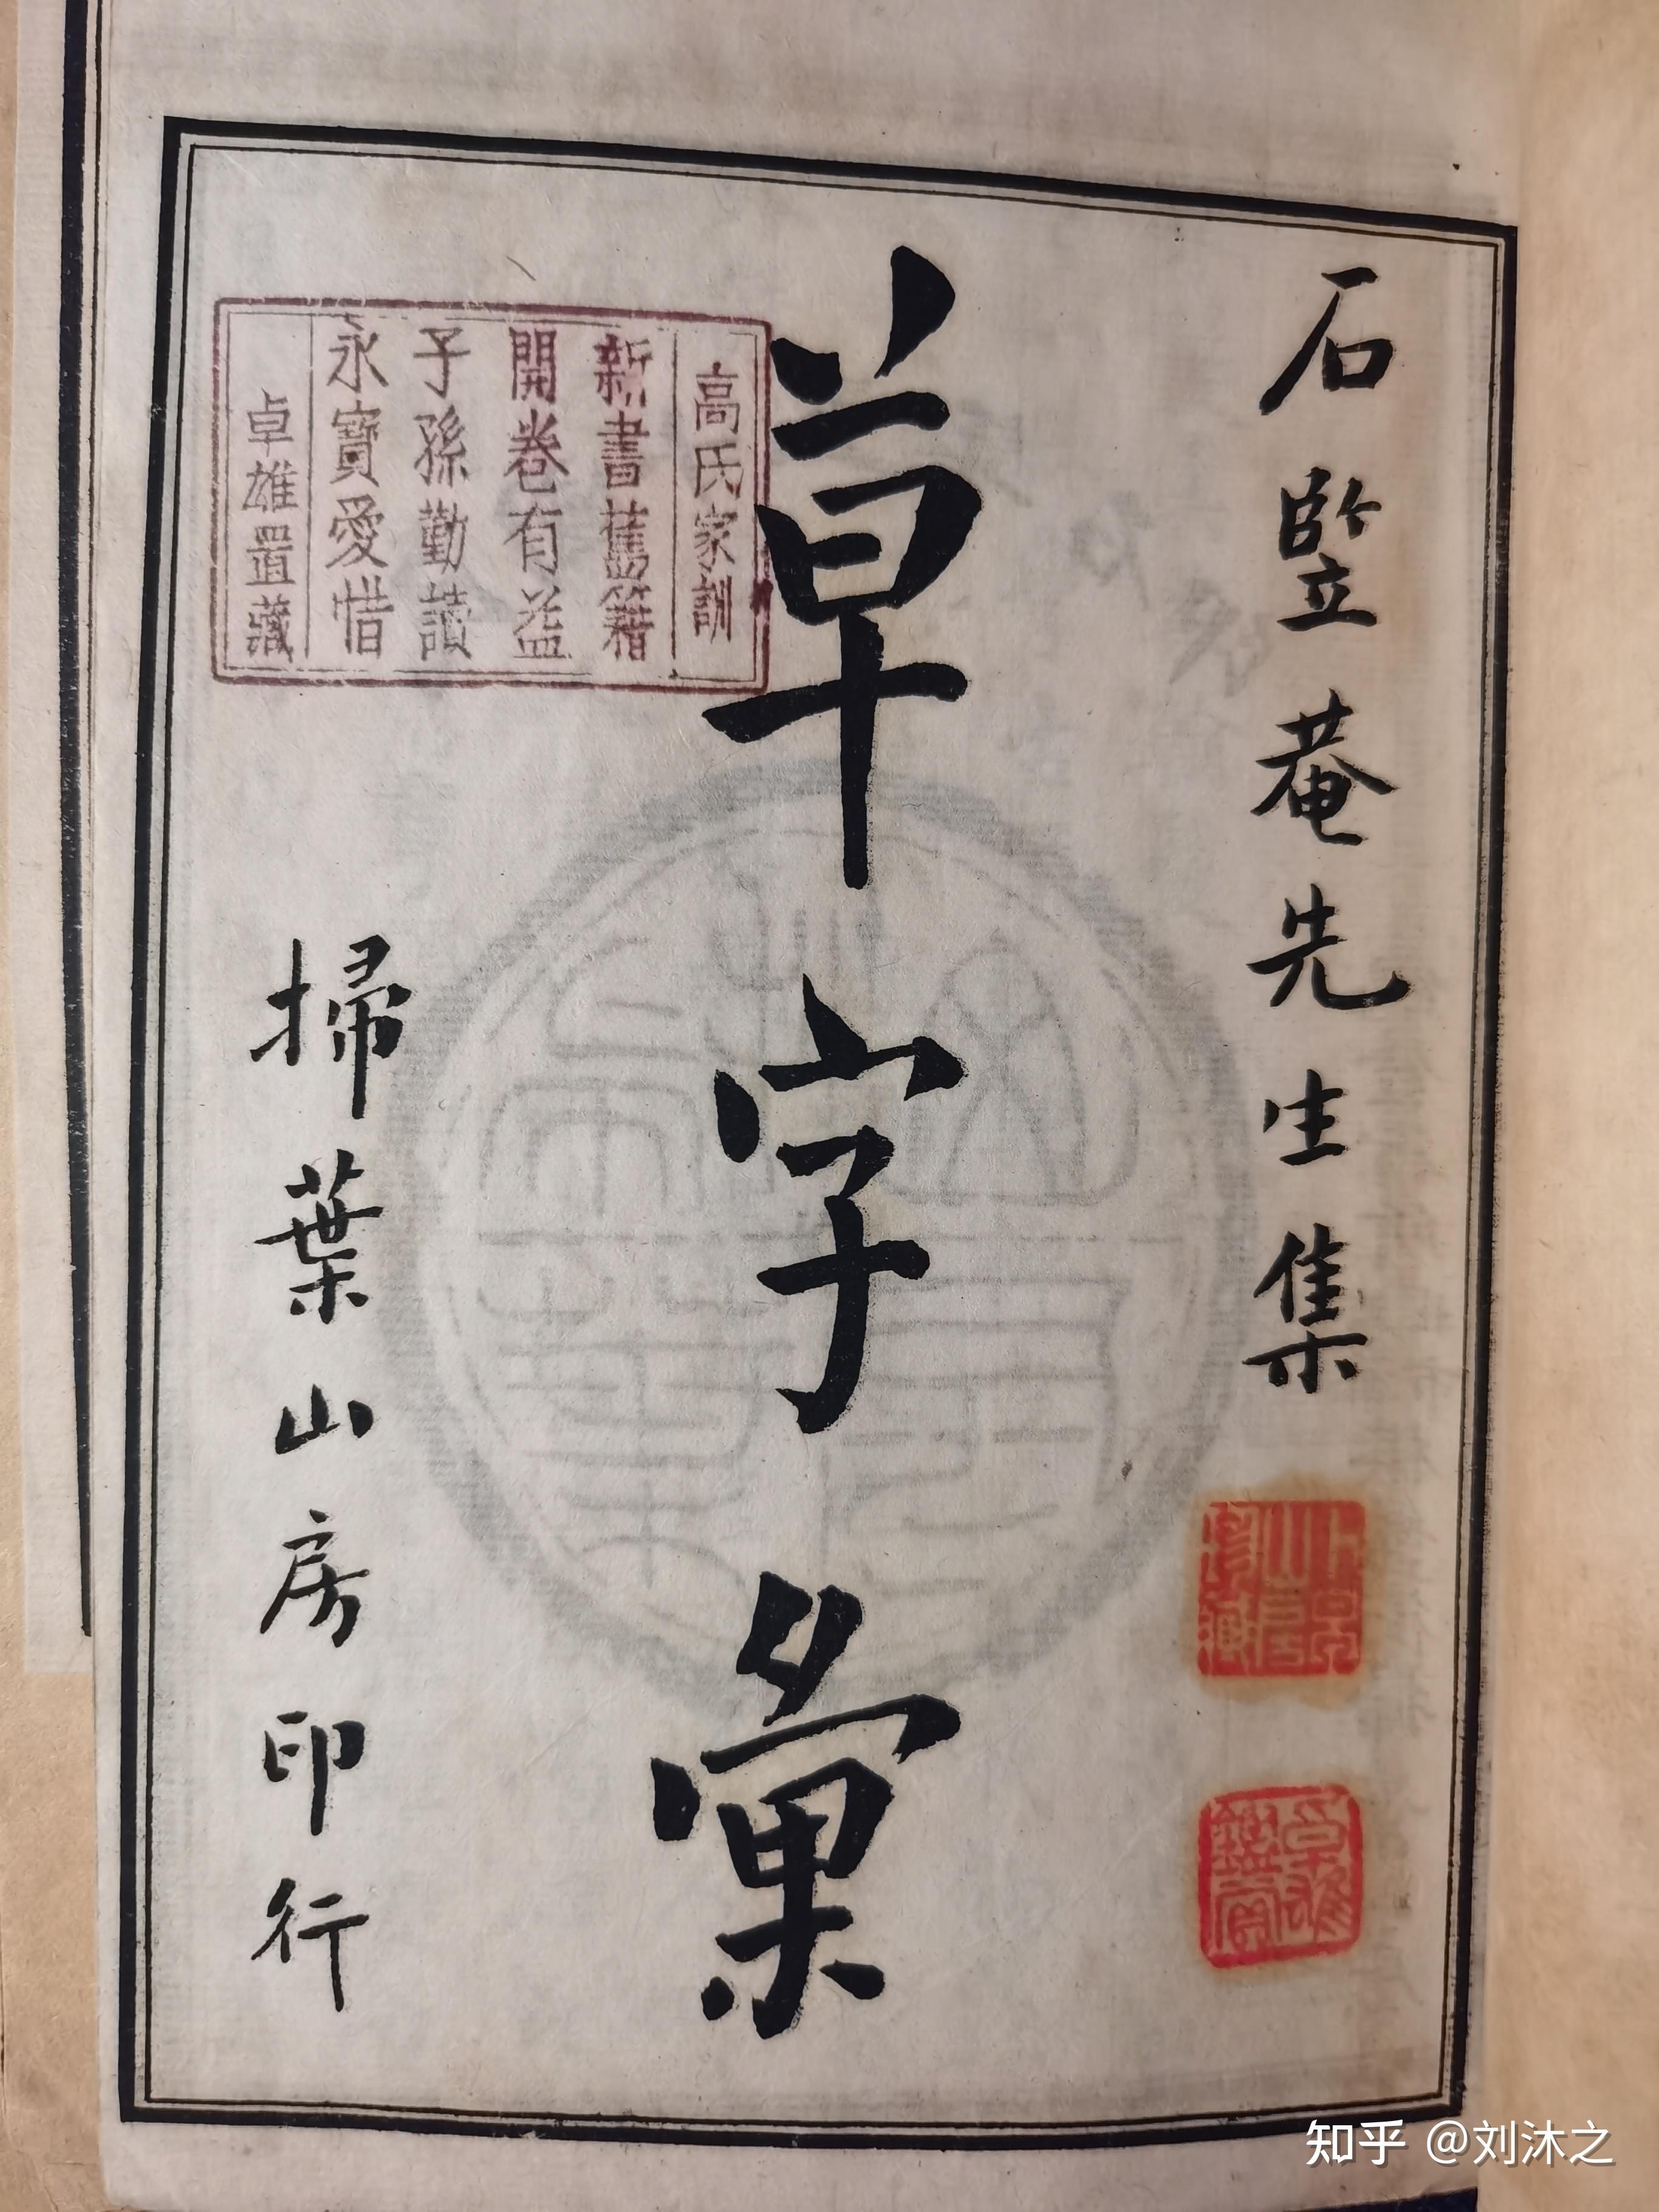 石竪菴先生集
草字彙
高氏家訓
新書舊籍
開卷有益
子孫勤讀
永寶愛惜
卓雄置藏
掃葉山房印行
知乎 @刘沐之